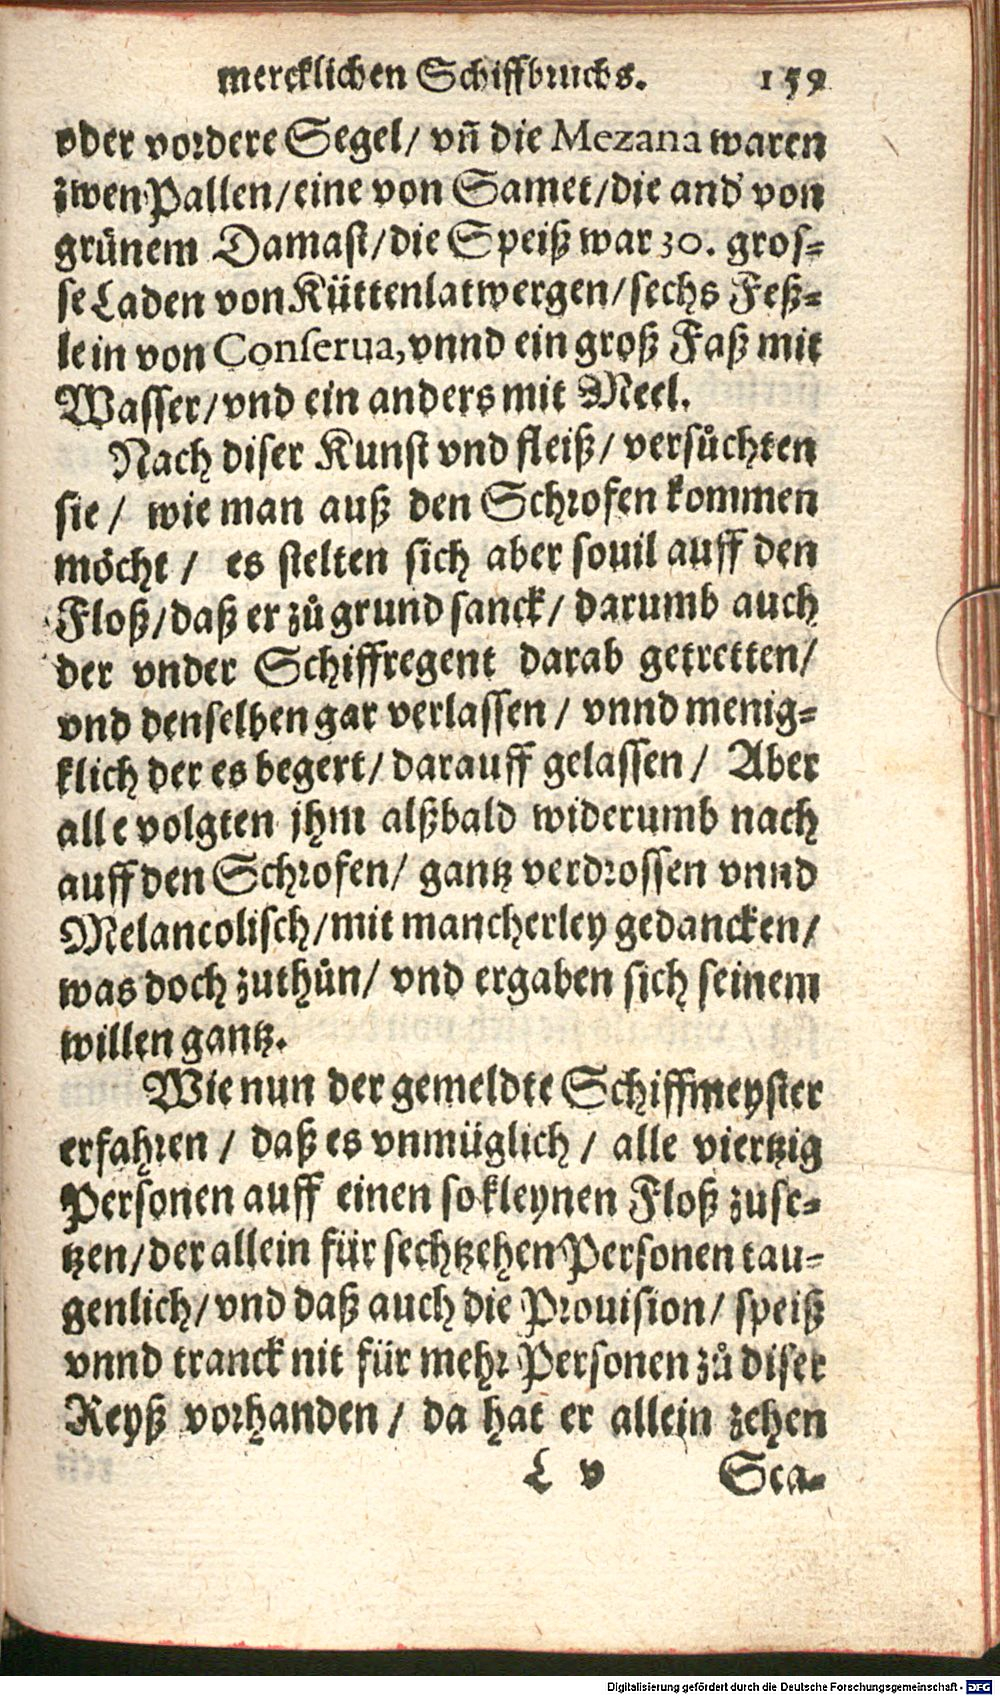 mercklichen Schiffbruchs. 159
oder vordere Segel/ vñ die Mezana waren
zwen Pallen/eine von Samet/die and' von
grünem Damast/die Speiß war 30. gros-
se Laden von Küttenlatwergen/sechs Feß-
lein von Conserua, vnnd ein groß Faß mit
Wasser/vnd ein anders mit Meel.
Nach diser Kunst vnd fleiß/ versůchten
sie/ wie man auß den Schrofen kommen
möcht/ es stelten sich aber souil auff den
Floß/daß er zů grund sanck/ darumb auch
der vnder Schiffregent darab getretten/
vnd denselben gar verlassen/ vnnd menig-
klich der es begert/ darauff gelassen/ Aber
alle volgten jhm alßbald widerumb nach
auff den Schrofen/ gantz verdrossen vnnd
Melancolisch/mit mancherley gedancken/
was doch zuthůn/ vnd ergaben sich seinem
willen gantz.
Wie nun der gemeldte Schiffmeyster
erfahren/ daß es vnmüglich/ alle viertzig
Personen auff einen so kleynen Floß zuse-
tzen/der allein für sechtzehen Personen tau-
genlich/vnd daß auch die Prouision/ speiß
vnnd tranck nit für mehr Personen zů diser
Reyß vorhanden/ da hat er allein zehen
L v Sca-
Digitalisierung gefördert durch die Deutsche Forschungsgemeinschaft - DFG